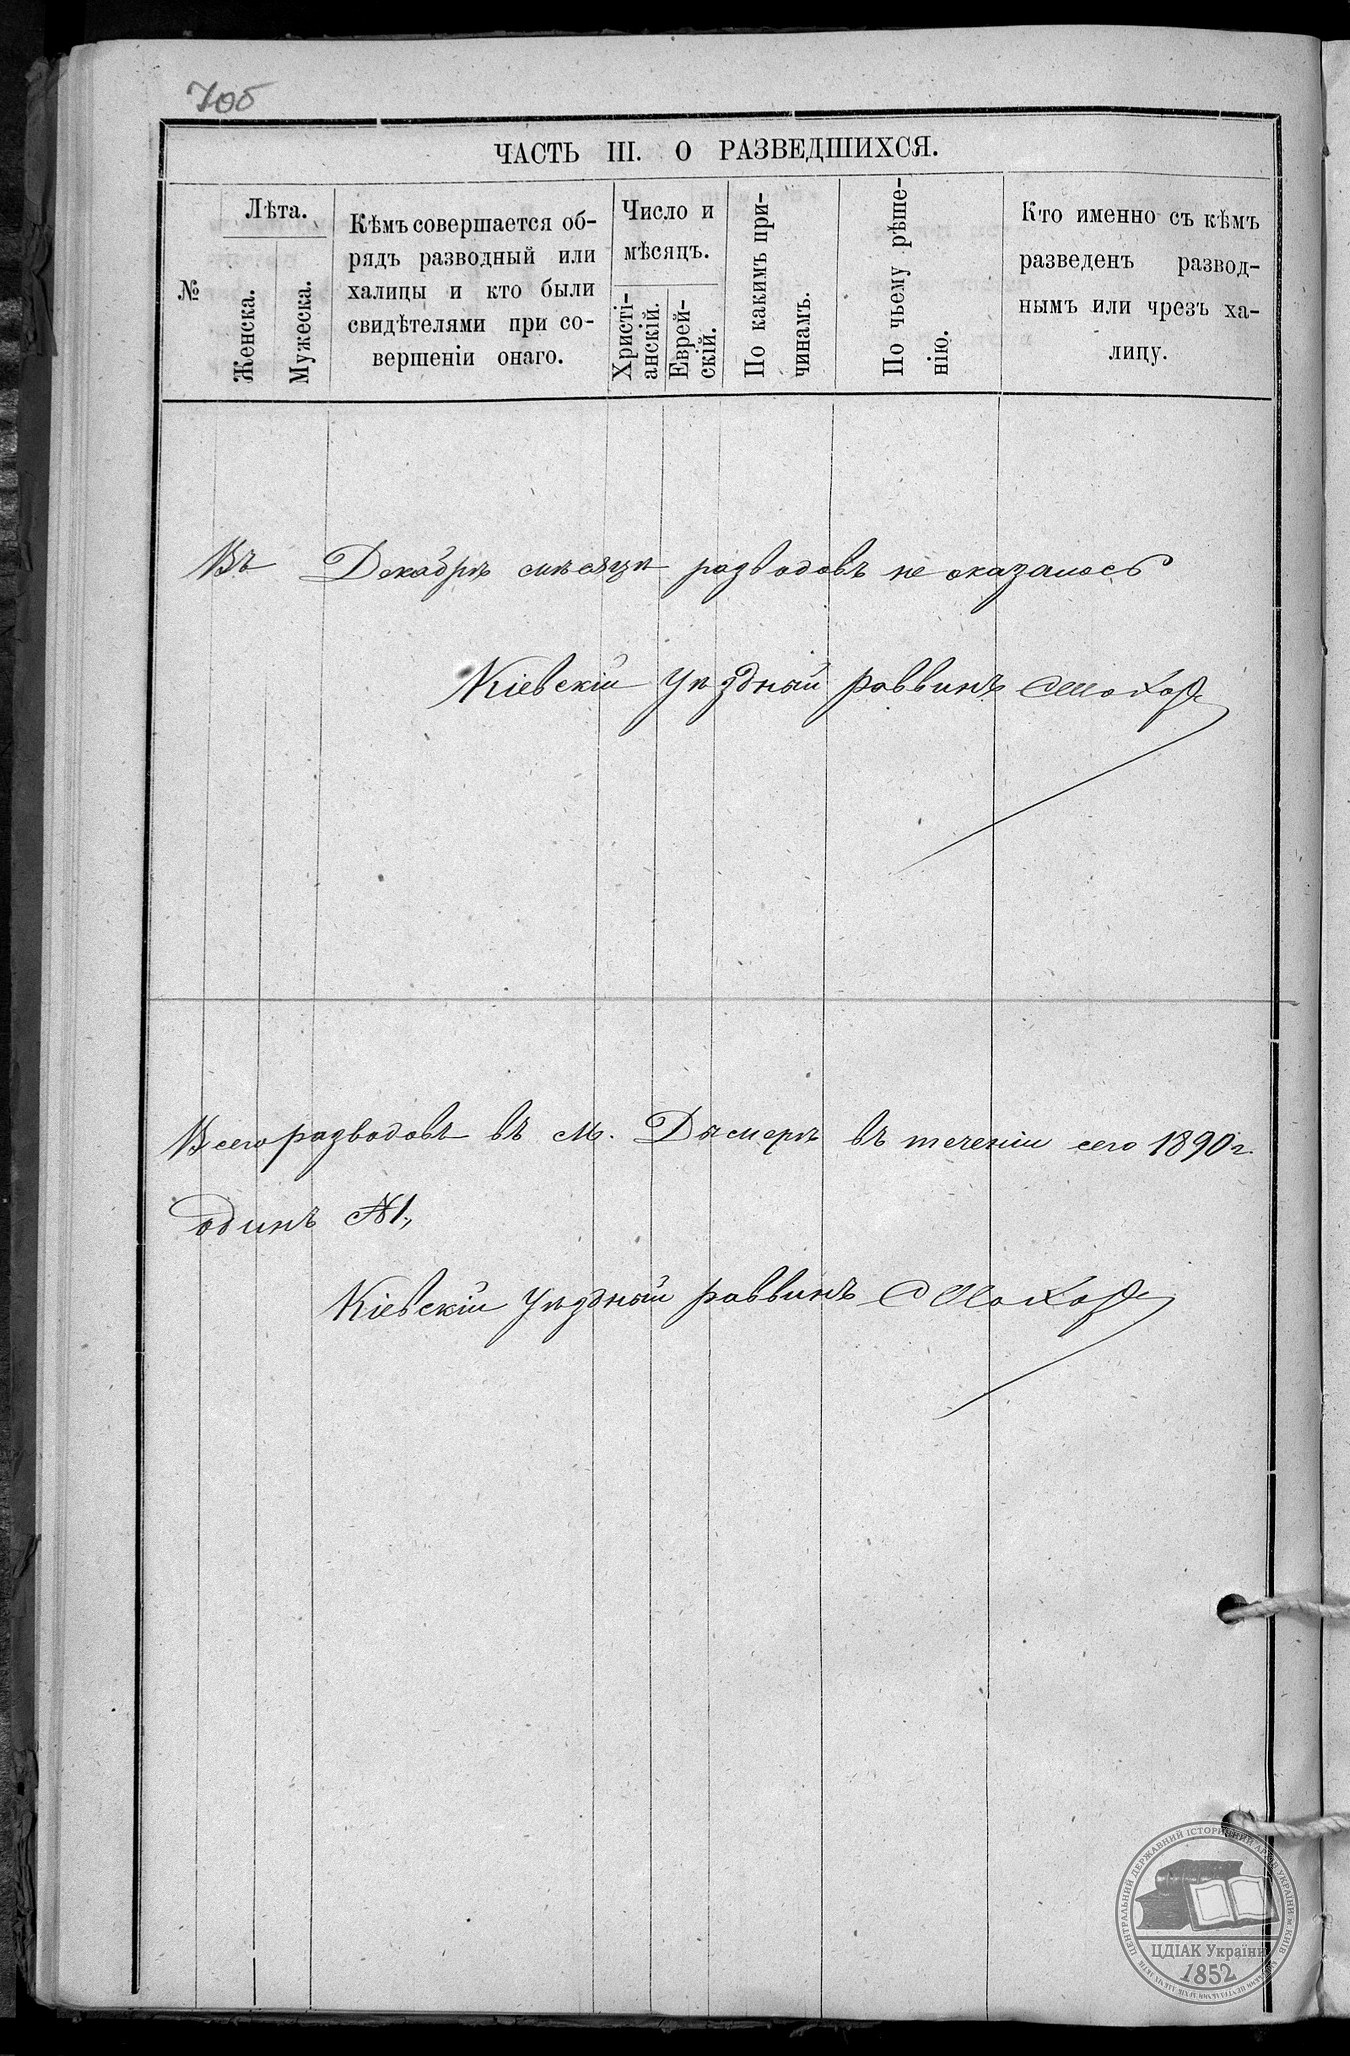 70б
ЧАСТЬ III. О РАЗВЕДШИХСЯ.
№
Лѣта.
Женска.
Мужеска.
Кѣмъ совершается об-
рядъ разводный или
халицы и кто были
свидѣтелями при со-
вершеніи онаго.
Число и
мѣсяцъ.
Христі-
анскій.
Еврей-
скій.
По какимъ при-
чинамъ.
По чьему рѣше-
нію.
Кто именно съ кѣмъ
разведенъ развод-
нымъ или чрез ха-
лицу.
Въ Декабрѣ мѣсяцѣ разводовъ не оказалось
Кіевскій Уѣздный раввинъ
Всего разводовъ въ м. Дымерѣ въ теченіи сего 1890 г.
одинъ №1,
Кіевскій Уѣздный раввинъ
ЦЕНТРАЛЬНИЙ ДЕРЖАВНИЙ ІСТОРИЧНИЙ АРХІВ УКРАЇНИ м. КИЇВ
ЦДІАК України
1852